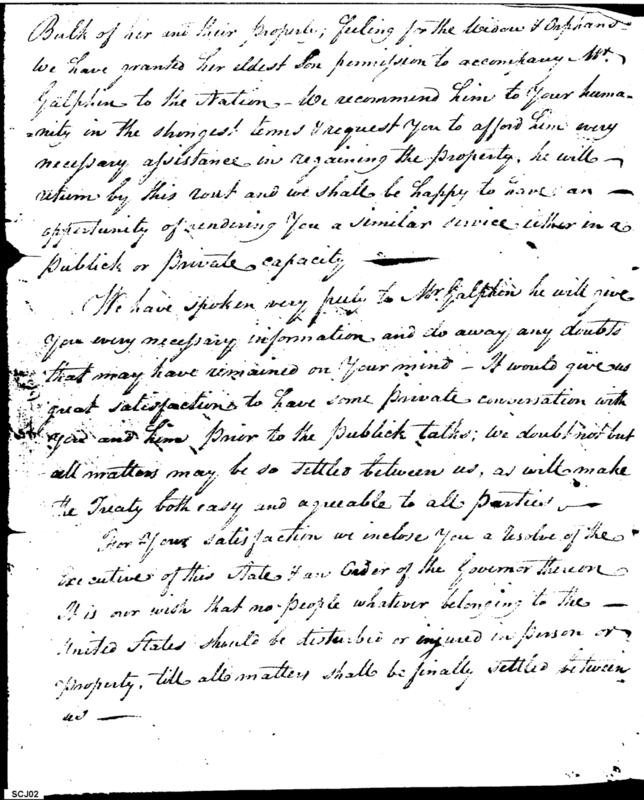 Bulk of her and their property; feeling for the Widow & Orphans
We have granted her eldest Son permission to accompany Mr.
Galphin to the Nation – We recommend him to Your huma=
=nity in the strongest terms & request You to afford him every
necessary assistance in regaining the property, he will –
return by this rout and we shall be happy to have an –
oppertunity of rendering You a similar service either in a
Publick or Private capacity —
We have spoken very freely to Mr. Galphin he will give
You every necessary information and do away any doubts
that may have remained on Your mind – It would give us
great satisfaction to have some Private conversation with
You and him Prior to the Publick talks; we doubt not but
all matters may be so settled between us, as will make
the Treaty both easy and agreable to all Parties –
For Your satisfaction we inclose You a resolve of the
Executive of this State & an Order of the Governor thereon
It is our wish that no People whatever belonging to the –
United States should be disturbed or injured in Person or
Property, till all matters shall be finally settled between
us —
SCJ02